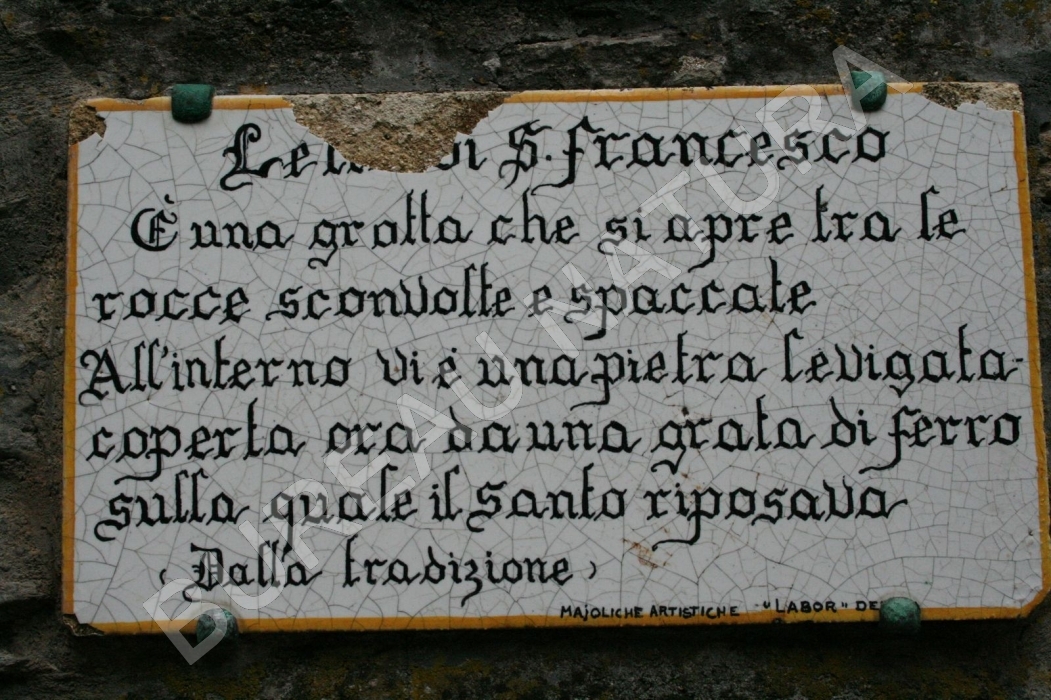 di S. Francesco
È una grotta che si apre tra le
rocce sconvolte e spaccate
All'interno vi é una pietra levigata-
coperta ora da una grata di ferro
sulla quale il Santo riposava
(Dalla tradizione)
MAJOLICHE ARTISTICHE "LABOR" DE
BUREAU NATURA